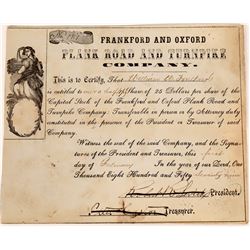 FRANKFORD AND OXFORD
PLANK ROAD AND TURNPIKE
COMPANY.
This is to Certify, That William W.
is entitled to one & half Share of 25 Dollars per share of the
Capital Stock of the Frankford and Oxford Plank Road and
Turnpike Company: Transferable in person or by Attorney duly
constituted in the presence of the President or Treasurer of said
Company.
Witness the seal of the said Company, and the Signa-
tures of the President and Treasurer, this first
day of February in the year of our Lord, One
Thousand Eight Hundred and Fifty
President.
Treasurer.